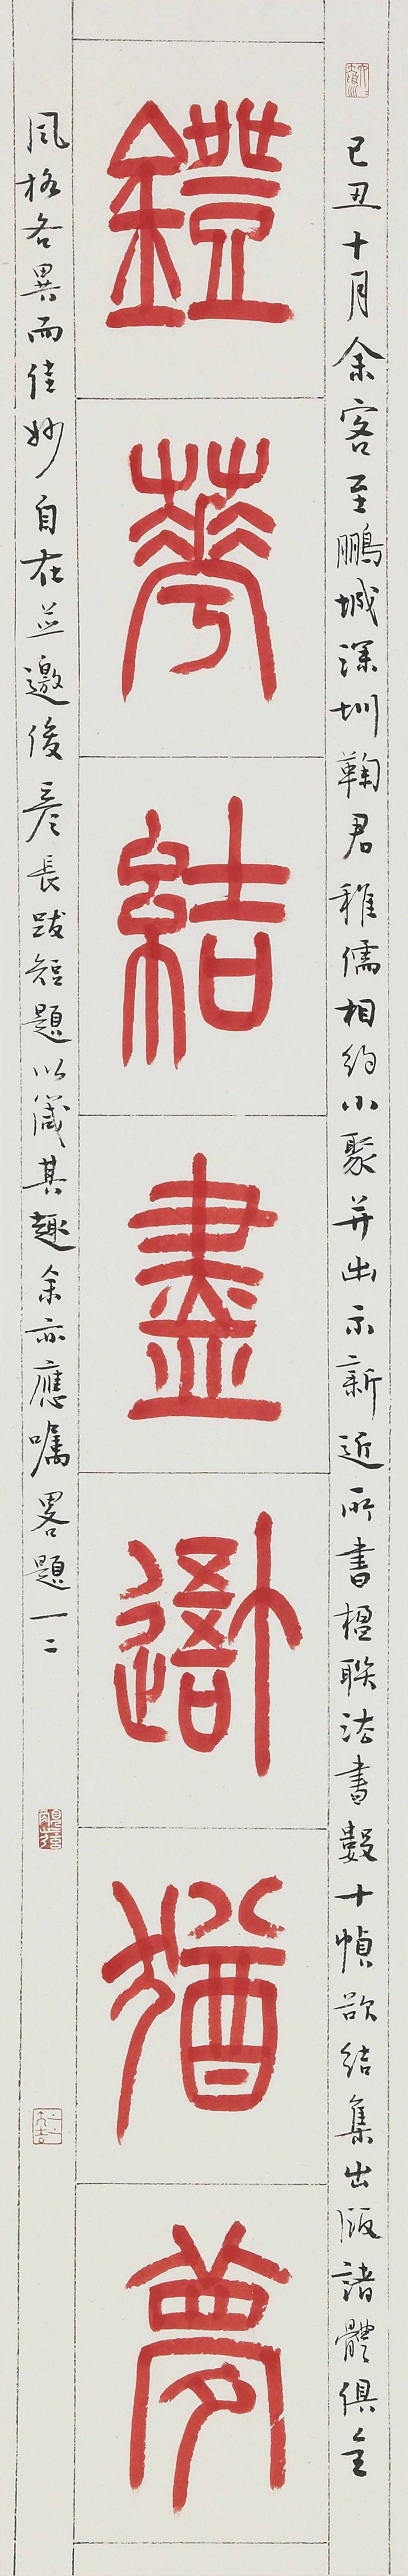 己丑十月余客至鵬城深圳鞠君稚儒相約小聚并出示新近所書楹聯法書數十幀欲結集出版諸體俱全
鐙華結盡猶夢
風格各異而佳妙自在並邀俊彥長跋短題以箴其趣余亦應囑畧題一二